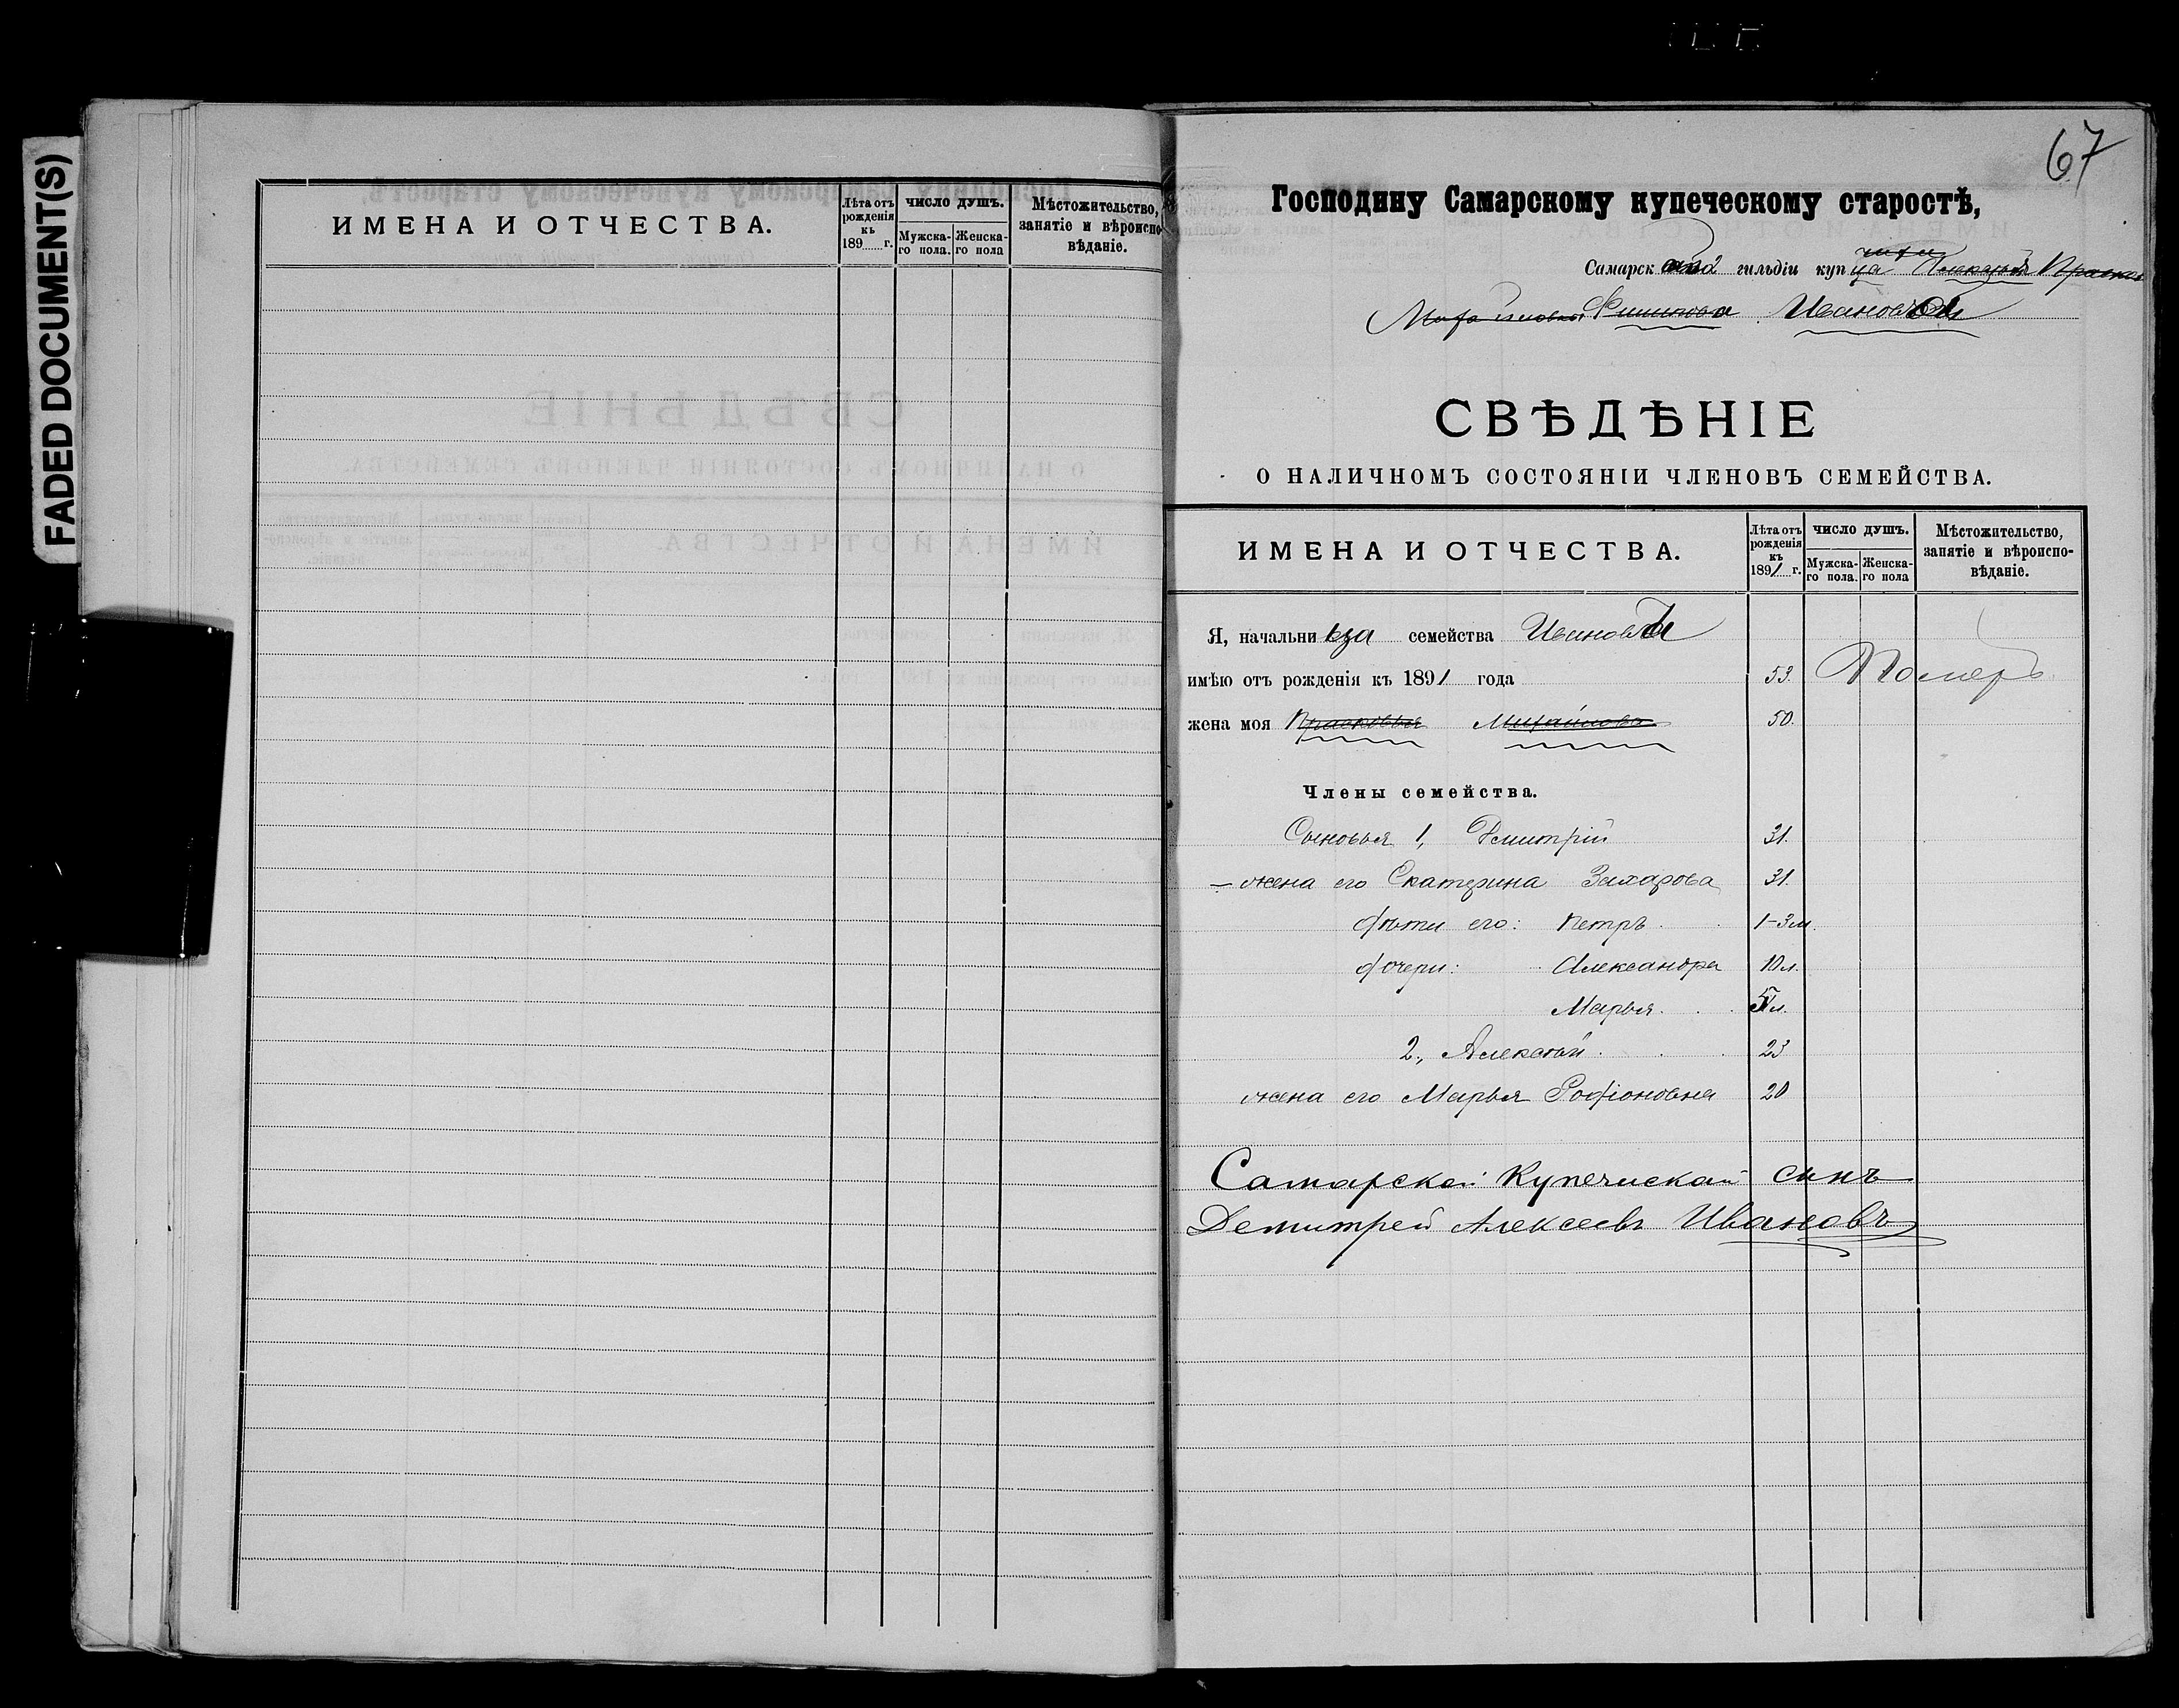 FADED DOCUMENT(S)
ИМЕНА И ОТЧЕСТВА.
Лѣта отъ рожденія къ 189 г.
ЧИСЛО ДУШЪ.
Мужска-го пола.
Женска-го пола
Мѣстожительство, занятіе и вѣроиспо-вѣданіе.
67
Господину Самарскому купеческому старостѣ,
Самарск 2 гильдіи куп ца
Иванов
СВѢДѢНІЕ
О НАЛИЧНОМЪ СОСТОЯНІИ ЧЛЕНОВЪ СЕМЕЙСТВА.
ИМЕНА И ОТЧЕСТВА.
Лѣта отъ рожденія къ 1891 г.
ЧИСЛО ДУШЪ.
Мужска-го пола.
Женска-го пола
Мѣстожительство, занятіе и вѣроиспо-вѣданіе.
Я, начальни семейства Иванов
имѣю отъ рожденія къ 1891 года 53. Померъ
жена моя Прасковья Михайлова 50.
Члены семейства.
Сыновья 1, Дмитрій 31.
– жена его Екатерина Захарова 31.
дѣти его: Петръ 1-3м.
дочери: Александра 10 л.
Марья 5 л.
2., Алексѣй 23
жена его Марья Родіоновна 20
Самарской Купечискай сынъ
Демитрей Алексеевъ Ивановъ